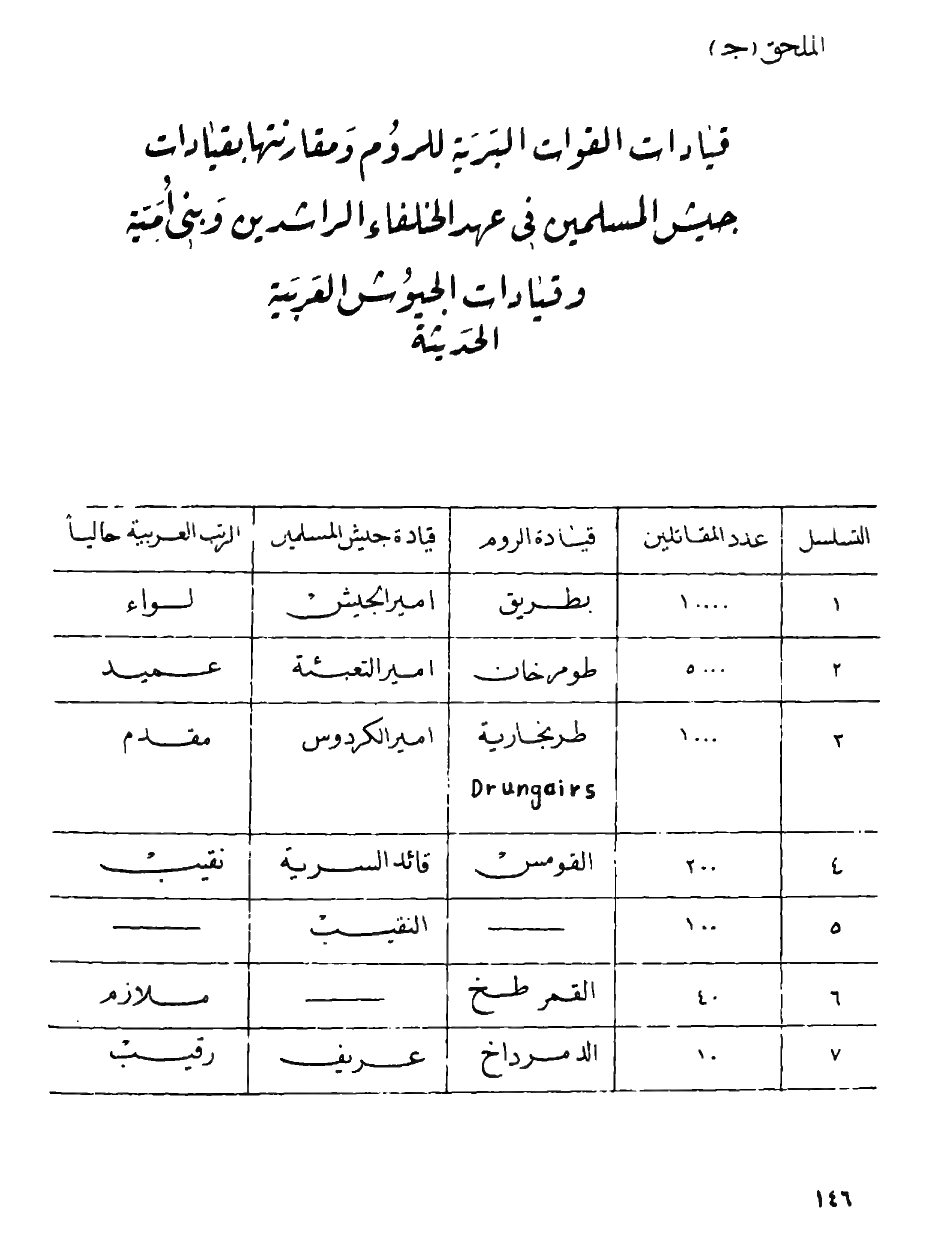 الملحق (جـ)
قيادات القوات البَرَيَة للروُم وَمقارنتها بقيادات
جيش المسلمين في عهد الخلفاء الراشدين وَبني أُمَيَّة
وقيادات الجيوُش العَربَية
الحَديثة
التسلسل | عدد المقاتلين | قيادة الروم | قيادة جيش المسلمين | الرتب العربية حالياً
١ | ١٠٠٠٠ | بطريق | امير الجيش | لواء
٢ | ٥٠٠٠ | طومرخان | امير التعبئة | عميد
٣ | ١٠٠٠ | طرنجارية | امير الكردوس | مقدم
Drungairs
٤ | ٢٠٠ | القومس | قائد السرية | نقيب
٥ | ١٠٠ | —— | النقيب | ——
٦ | ٤٠ | القمرطخ | —— | ملازم
٧ | ١٠ | الدمرداخ | عريف | رقيب
١٤٦